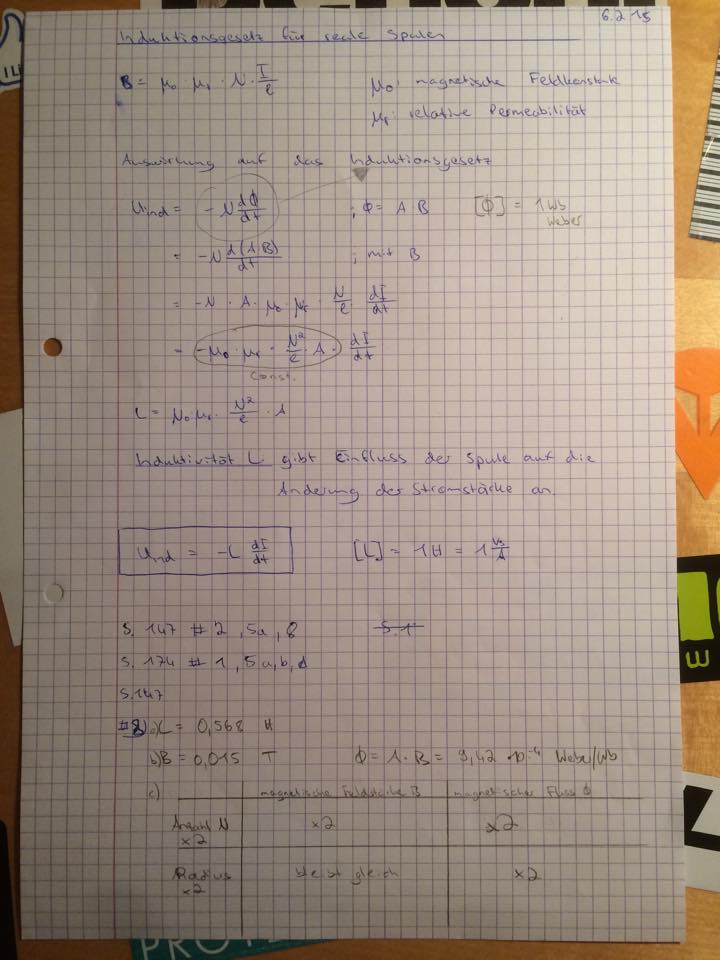 6.2.15
Induktionsgesetz für reale Spulen
B = μ₀ · μᵣ · N · I/l
μ₀: magnetische Feldkonstante
μᵣ: relative Permeabilität
Auswirkung auf das Induktionsgesetz
Uind = - N dϕ/dt ; ϕ = A B [ϕ] = 1 Wb
Weber
= -N d(A·B)/dt ; mit B
= -N · A · μ₀ · μᵣ · N/l dI/dt
= -μ₀ · μᵣ · N²/l · A · dI/dt
Const.
L = μ₀ · μᵣ · N²/l · A
Induktivität L gibt Einfluss der Spule auf die
Änderung der Stromstärke an.
Uind = -L dI/dt [L] = 1H = 1 Vs/A
S. 147 # 2, 5a, 8 S. 1
S. 174 # 1, 5a, b, d
S. 147
#8 a) L = 0,568 H
b) B = 0,015 T ϕ = A · B = 9,42 · 10⁻⁴ Weber/Wb
c) magnetische Feldstärke B magnetischer Fluss ϕ
Anzahl N x2 x2
x2
Radius bleibt gleich x2
x2
ILI